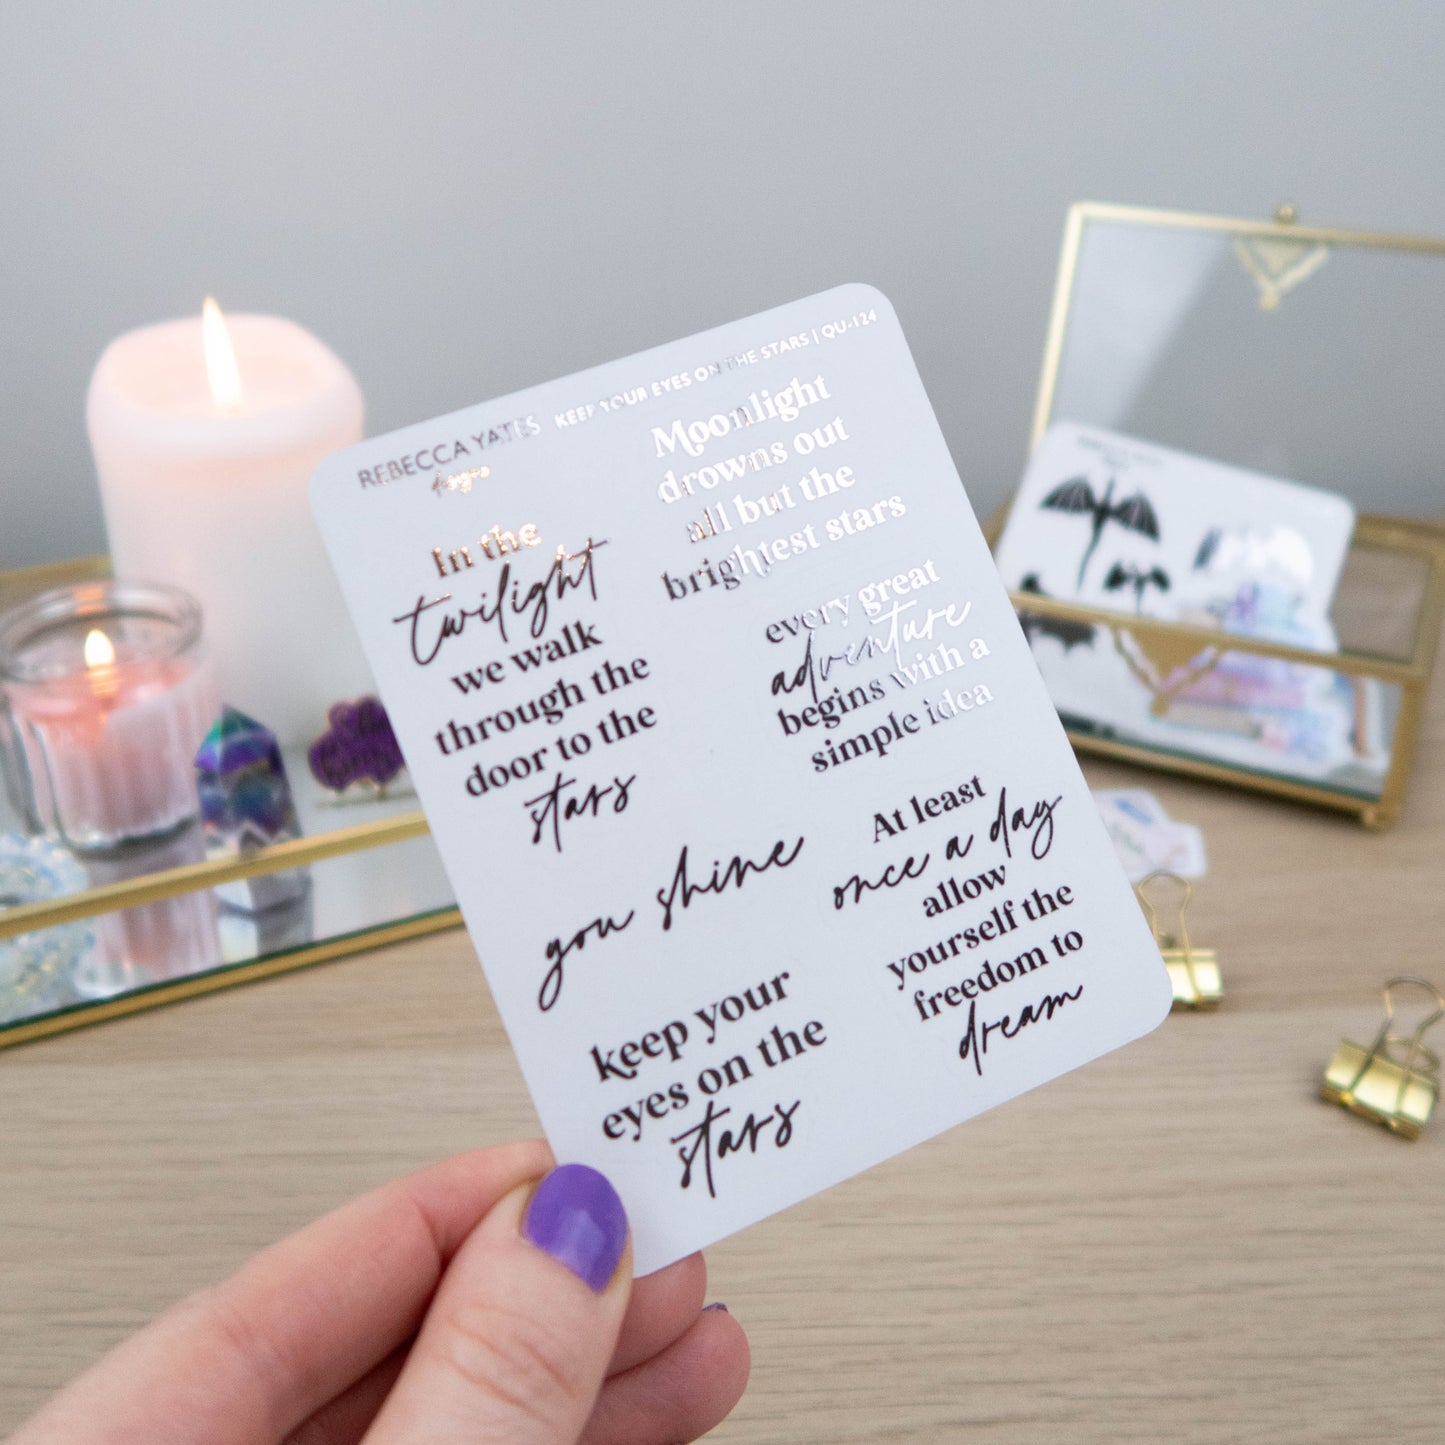 REBECCA YATES
KEEP YOUR EYES ON THE STARS | QU-124
In the
twilight
we walk
through the
door to the
stars
Moonlight
drowns out
all but the
brightest stars
every great
adventure
begins with a
simple idea
you shine
At least
once a day
allow
yourself the
freedom to
dream
keep your
eyes on the
stars